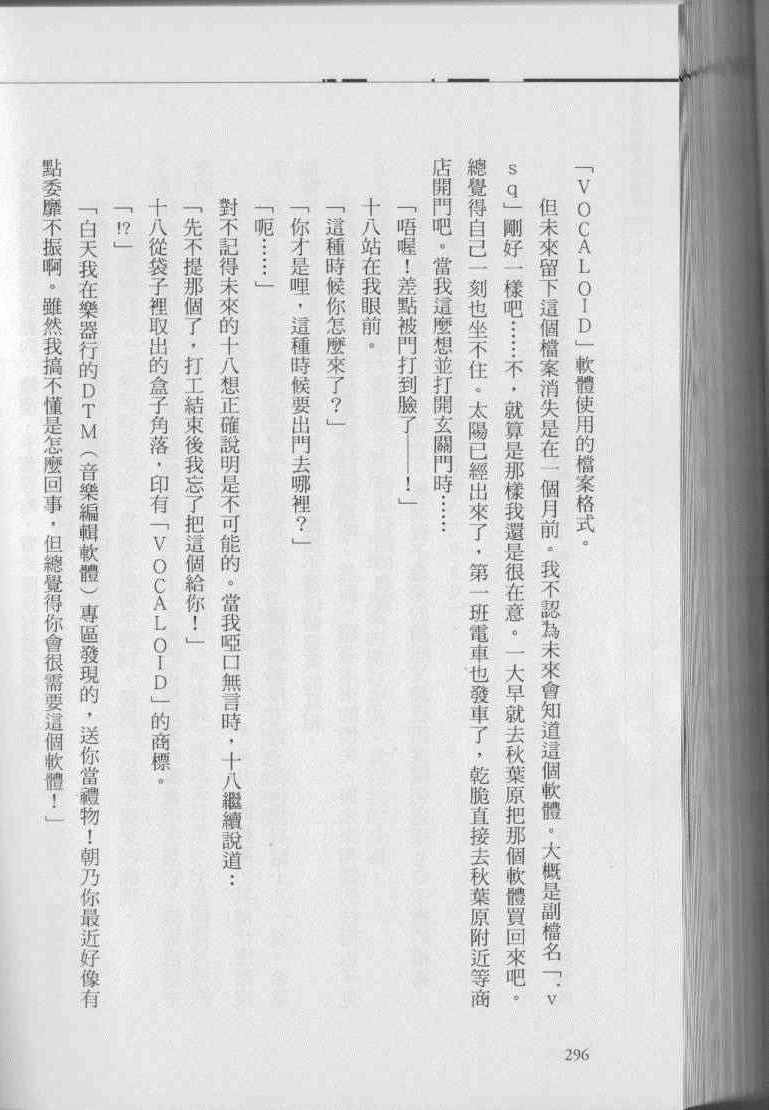 「ＶＯＣＡＬＯＩＤ」軟體使用的檔案格式。
但未來留下這個檔案消失是在一個月前。我不認為未來會知道這個軟體。大概是副檔名「.ｖ
ｓｑ」剛好一樣吧……不，就算是那樣我還是很在意。一大早就去秋葉原把那個軟體買回來吧。
總覺得自己一刻也坐不住。太陽已經出來了，第一班電車也發車了，乾脆直接去秋葉原附近等商
店開門吧。當我這麼想並打開玄關門時……
「唔喔！差點被門打到臉了——！」
十八站在我眼前。
「這種時候你怎麼來了？」
「你才是哩，這種時候要出門去哪裡？」
「呃……」
對不記得未來的十八想正確說明是不可能的。當我啞口無言時，十八繼續說道：
「先不提那個了，打工結束後我忘了把這個給你！」
十八從袋子裡取出的盒子角落，印有「ＶＯＣＡＬＯＩＤ」的商標。
「!?」
「白天我在樂器行的ＤＴＭ（音樂編輯軟體）專區發現的，送你當禮物！朝乃你最近好像有
點委靡不振啊。雖然我搞不懂是怎麼回事，但總覺得你會很需要這個軟體！」
296